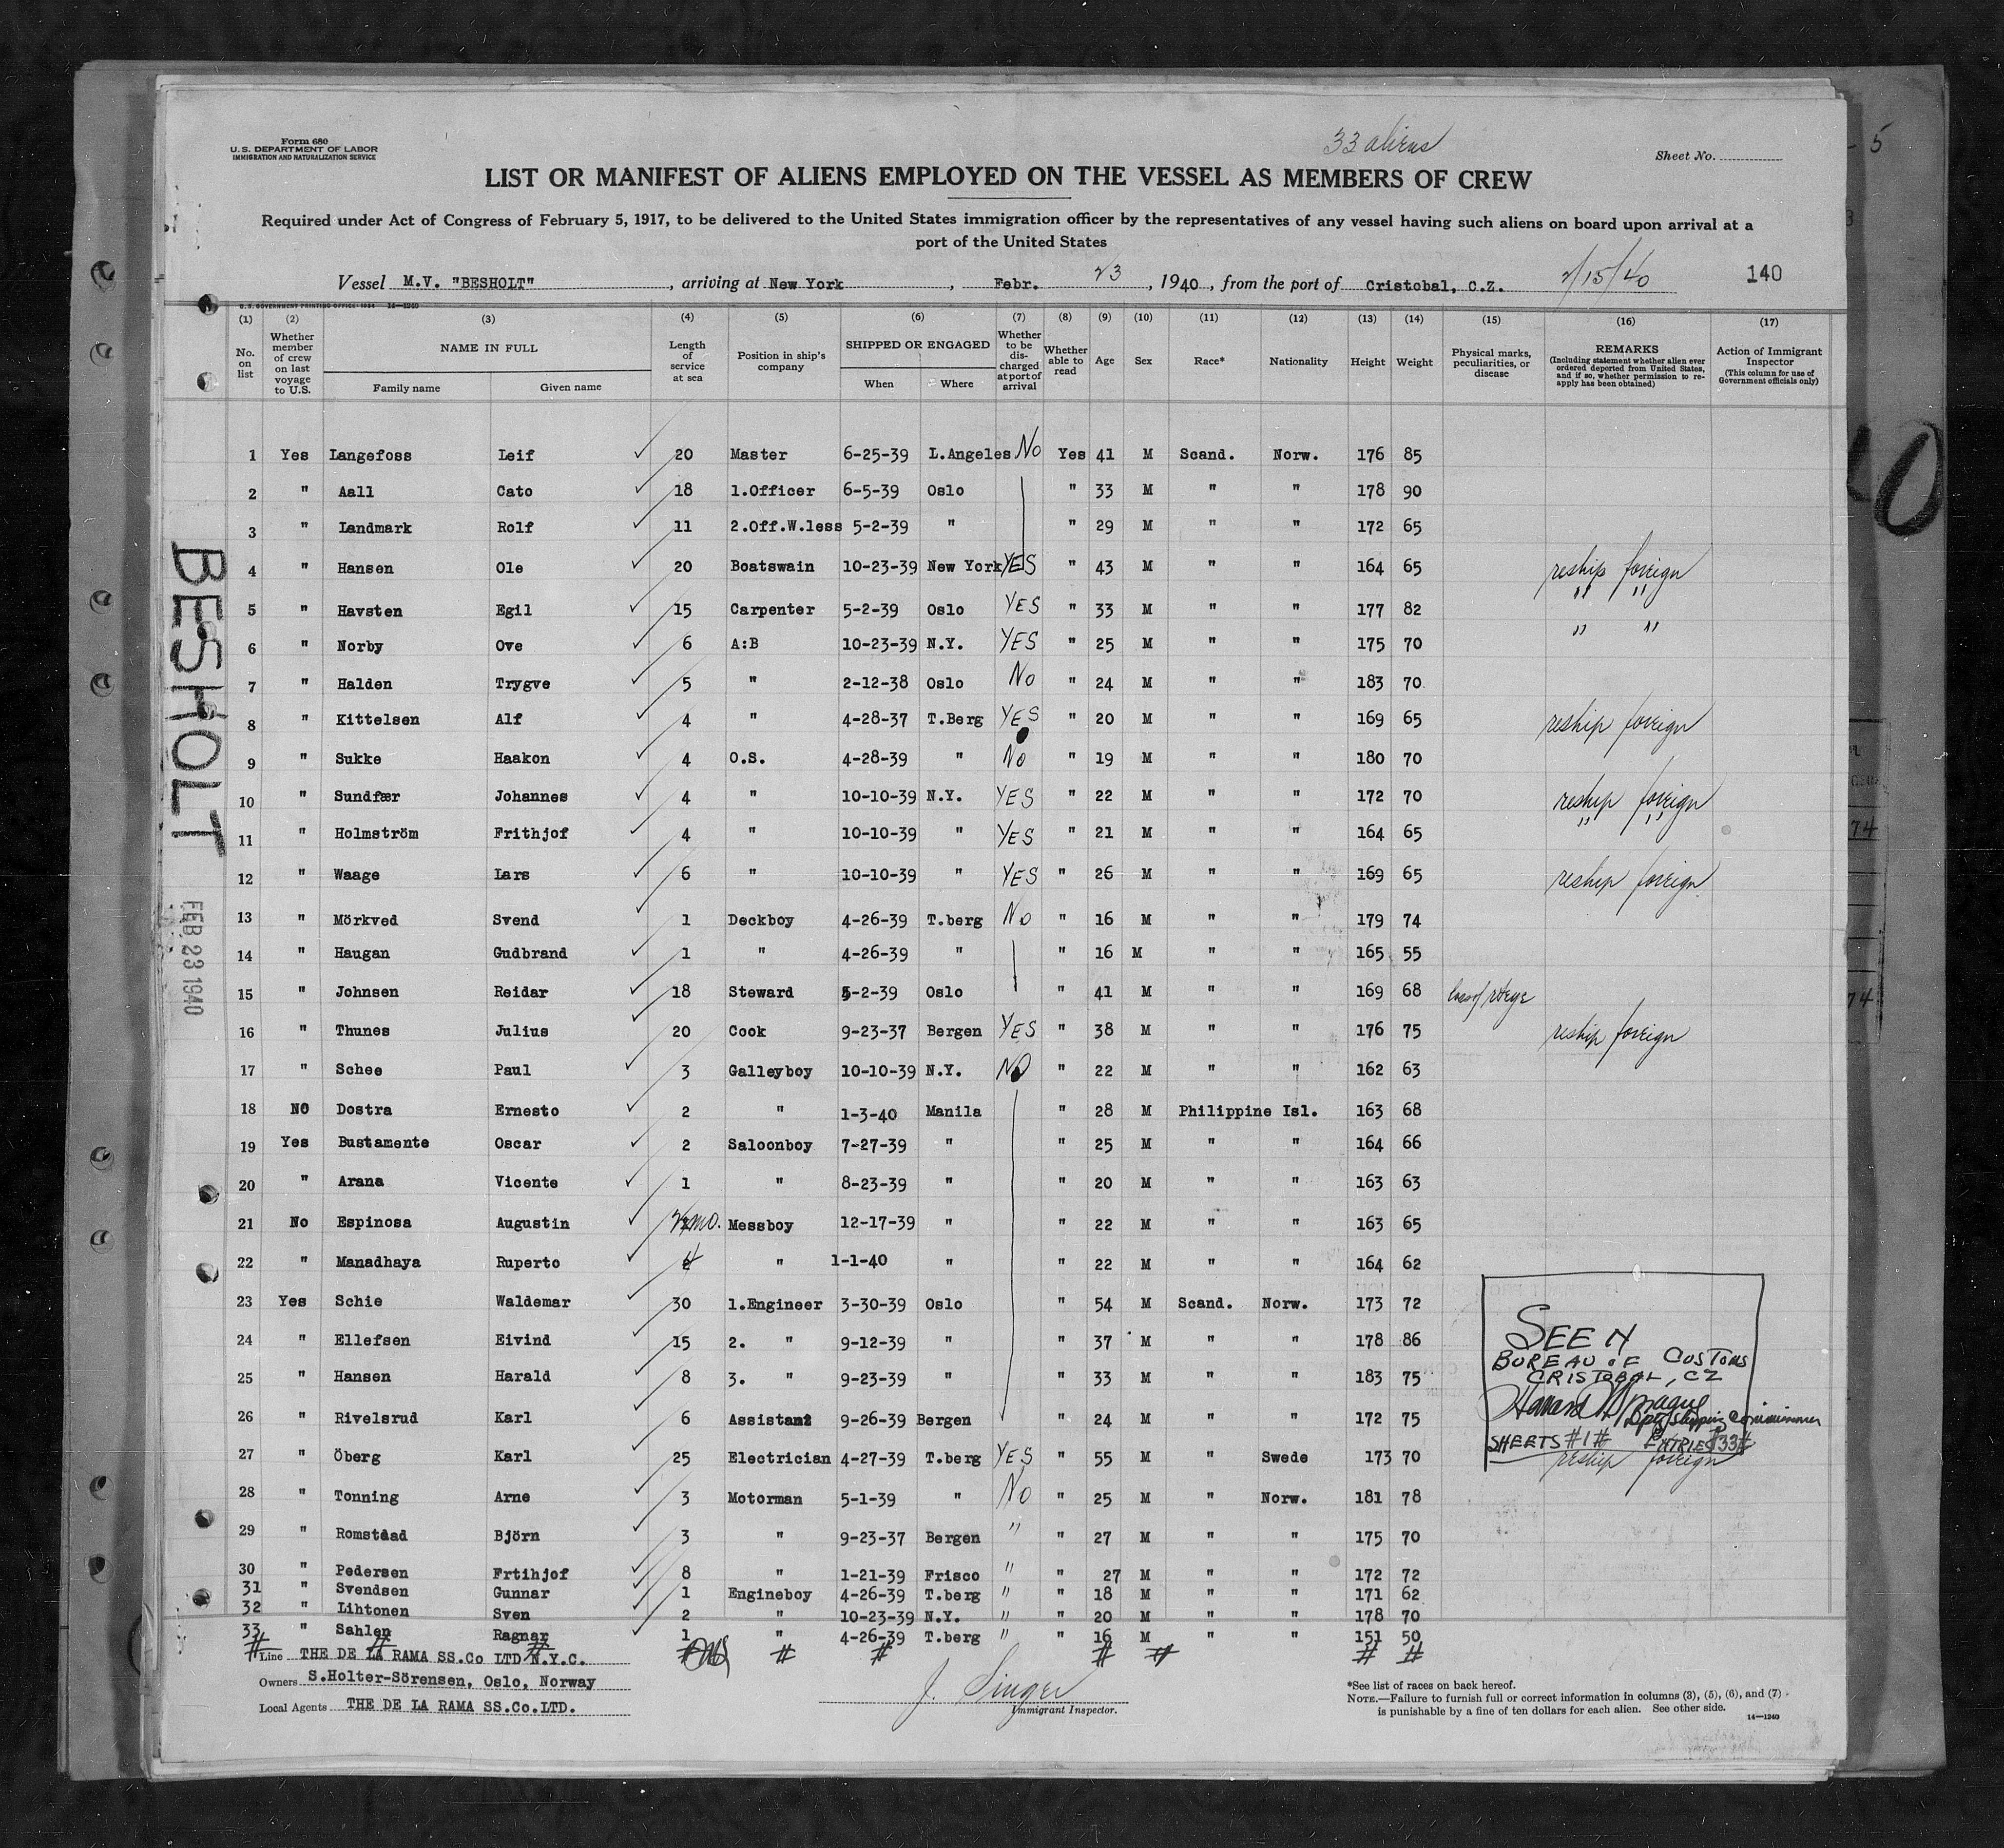 33 aliens
Form 680
U. S. DEPARTMENT OF LABOR
IMMIGRATION AND NATURALIZATION SERVICE
Sheet No.
5
LIST OR MANIFEST OF ALIENS EMPLOYED ON THE VESSEL AS MEMBERS OF CREW
Required under Act of Congress of February 5, 1917, to be delivered to the United States immigration officer by the representatives of any vessel having such aliens on board upon arrival at a
port of the United States
Vessel M.V. "BESHOLT", arriving at New York, Febr. 23, 1940, from the port of Cristobal, C.Z. 2/15/40 140
U. S. GOVERNMENT PRINTING OFFICE: 1934 14—1240
(1) (2) (3) (4) (5) (6) (7) (8) (9) (10) (11) (12) (13) (14) (15) (16) (17)
No. on list
Whether member of crew on last voyage to U.S.
NAME IN FULL
Family name Given name
Length of service at sea
Position in ship's company
SHIPPED OR ENGAGED
When Where
Whether to be discharged at port of arrival
Whether able to read
Age
Sex
Race*
Nationality
Height
Weight
Physical marks, peculiarities, or disease
REMARKS
(Including statement whether alien ever ordered deported from United States, and if so, whether permission to reapply has been obtained)
Action of Immigrant Inspector
(This column for use of Government officials only)
1 Yes Langefoss Leif 20 Master 6-25-39 L.Angeles No Yes 41 M Scand. Norw. 176 85
2 " Aall Cato 18 1.Officer 6-5-39 Oslo " 33 M " " 178 90
3 " Landmark Rolf 11 2.Off.W.less 5-2-39 " " 29 M " " 172 65
4 " Hansen Ole 20 Boatswain 10-23-39 New York YES " 43 M " " 164 65 reship foreign
5 " Havsten Egil 15 Carpenter 5-2-39 Oslo YES " 33 M " " 177 82 " "
6 " Norby Ove 6 A:B 10-23-39 N.Y. YES " 25 M " " 175 70 " "
7 " Halden Trygve 5 " 2-12-38 Oslo No " 24 M " " 183 70
8 " Kittelsen Alf 4 " 4-28-37 T.Berg YES " 20 M " " 169 65 reship foreign
9 " Sukke Haakon 4 O.S. 4-28-39 " No " 19 M " " 180 70
10 " Sundfær Johannes 4 " 10-10-39 N.Y. YES " 22 M " " 172 70 reship foreign
11 " Holmström Frithjof 4 " 10-10-39 " YES " 21 M " " 164 65 " "
12 " Waage Lars 6 " 10-10-39 " YES " 26 M " " 169 65 reship foreign
13 " Mörkved Svend 1 Deckboy 4-26-39 T.berg No " 16 M " " 179 74
14 " Haugan Gudbrand 1 " 4-26-39 " " 16 M " " 165 55
15 " Johnsen Reidar 18 Steward 5-2-39 Oslo " 41 M " " 169 68 loss of rt eye
16 " Thunes Julius 20 Cook 9-23-37 Bergen YES " 38 M " " 176 75 reship foreign
17 " Schee Paul 3 Galleyboy 10-10-39 N.Y. NO " 22 M " " 162 63
18 NO Dostra Ernesto 2 " 1-3-40 Manila " 28 M Philippine Isl. 163 68
19 Yes Bustamente Oscar 2 Saloonboy 7-27-39 " " 25 M " " 164 66
20 " Arana Vicente 1 " 8-23-39 " " 20 M " " 163 63
21 No Espinosa Augustin mo. Messboy 12-17-39 " " 22 M " " 163 65
22 " Manadhaya Ruperto 4 " 1-1-40 " " 22 M " " 164 62
23 Yes Schie Waldemar 30 1.Engineer 3-30-39 Oslo " 54 M Scand. Norw. 173 72
24 " Ellefsen Eivind 15 2. " 9-12-39 " " 37 M " " 178 86
25 " Hansen Harald 8 3. " 9-23-39 " " 33 M " " 183 75
26 " Rivelsrud Karl 6 Assistant 9-26-39 Bergen " 24 M " " 172 75
27 " Öberg Karl 25 Electrician 4-27-39 T.berg YES " 55 M " Swede 173 70 reship foreign
28 " Tonning Arne 3 Motorman 5-1-39 " No " 25 M " Norw. 181 78
29 " Romstaad Björn 3 " 9-23-37 Bergen " " 27 M " " 175 70
30 " Pedersen Frtihjof 8 " 1-21-39 Frisco " " 27 M " " 172 72
31 " Svendsen Gunnar 1 Engineboy 4-26-39 T.berg " " 18 M " " 171 62
32 " Lihtonen Sven 2 " 10-23-39 N.Y. " " 20 M " " 178 70
33 " Sahlen Ragnar 1 " 4-26-39 T.berg " " 16 M " " 151 50
# # # # # # # # # #
SEEN
BUREAU OF CUSTOMS
CRISTOBAL, CZ
Sprague
Dpty Shipping Commissioner
SHEETS #1# ENTRIES #33#
Line THE DE LA RAMA SS.Co LTD N.Y.C.
Owners S.Holter-Sörensen, Oslo, Norway
Local Agents THE DE LA RAMA SS.Co.LTD.
J. Singer
Immigrant Inspector.
*See list of races on back hereof.
NOTE.—Failure to furnish full or correct information in columns (3), (5), (6), and (7)
is punishable by a fine of ten dollars for each alien. See other side.
14—1240
BESHOLT
FEB 23 1940
74
74